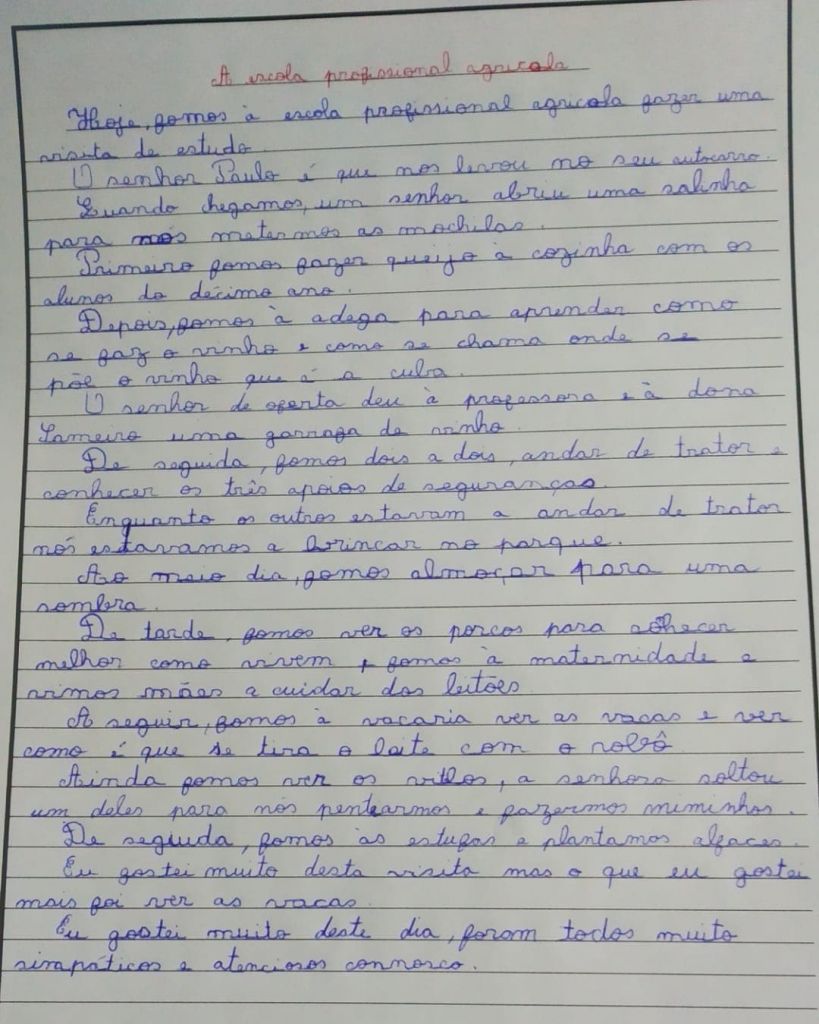 A escola profissional agricola
Hoje, fomos à escola profissional agricola fazer uma
visita de estudo.
O senhor Paulo é que nos levou no seu autocarro.
Quando chegamos, um senhor abriu uma salinha
para nós metermos as mochilas.
Primeiro fomos fazer queijo à cozinha com os
alunos do décimo ano.
Depois, fomos à adega para aprender como
se faz o vinho e como se chama onde se
põe o vinho que é a cuba.
O senhor de oferta deu à professora e à dona
Lameiro uma garrafa de vinho.
De seguida, fomos dois a dois, andar de trator e
conhecer os três apoios de seguranças.
Enquanto os outros estavam a andar de trator
nós estavamos a brincar no parque.
Ao meio dia, fomos almoçar para uma
sombra.
De tarde, fomos ver os porcos para conhecer
melhor como vivem, fomos à maternidade e
vimos mães a cuidar dos leitões
A seguir, fomos à vacaria ver as vacas e ver
como é que se tira o leite com o robô
Ainda fomos ver os vitlos, a senhora soltou
um deles para nós pentearmos e fazermos miminhos.
De seguida, fomos às estufas e plantamos alfaces.
Eu gostei muito desta visita mas o que eu gostei
mais foi ver as vacas.
Eu gostei muito deste dia, foram todos muito
simpáticos e atenciosos connosco.